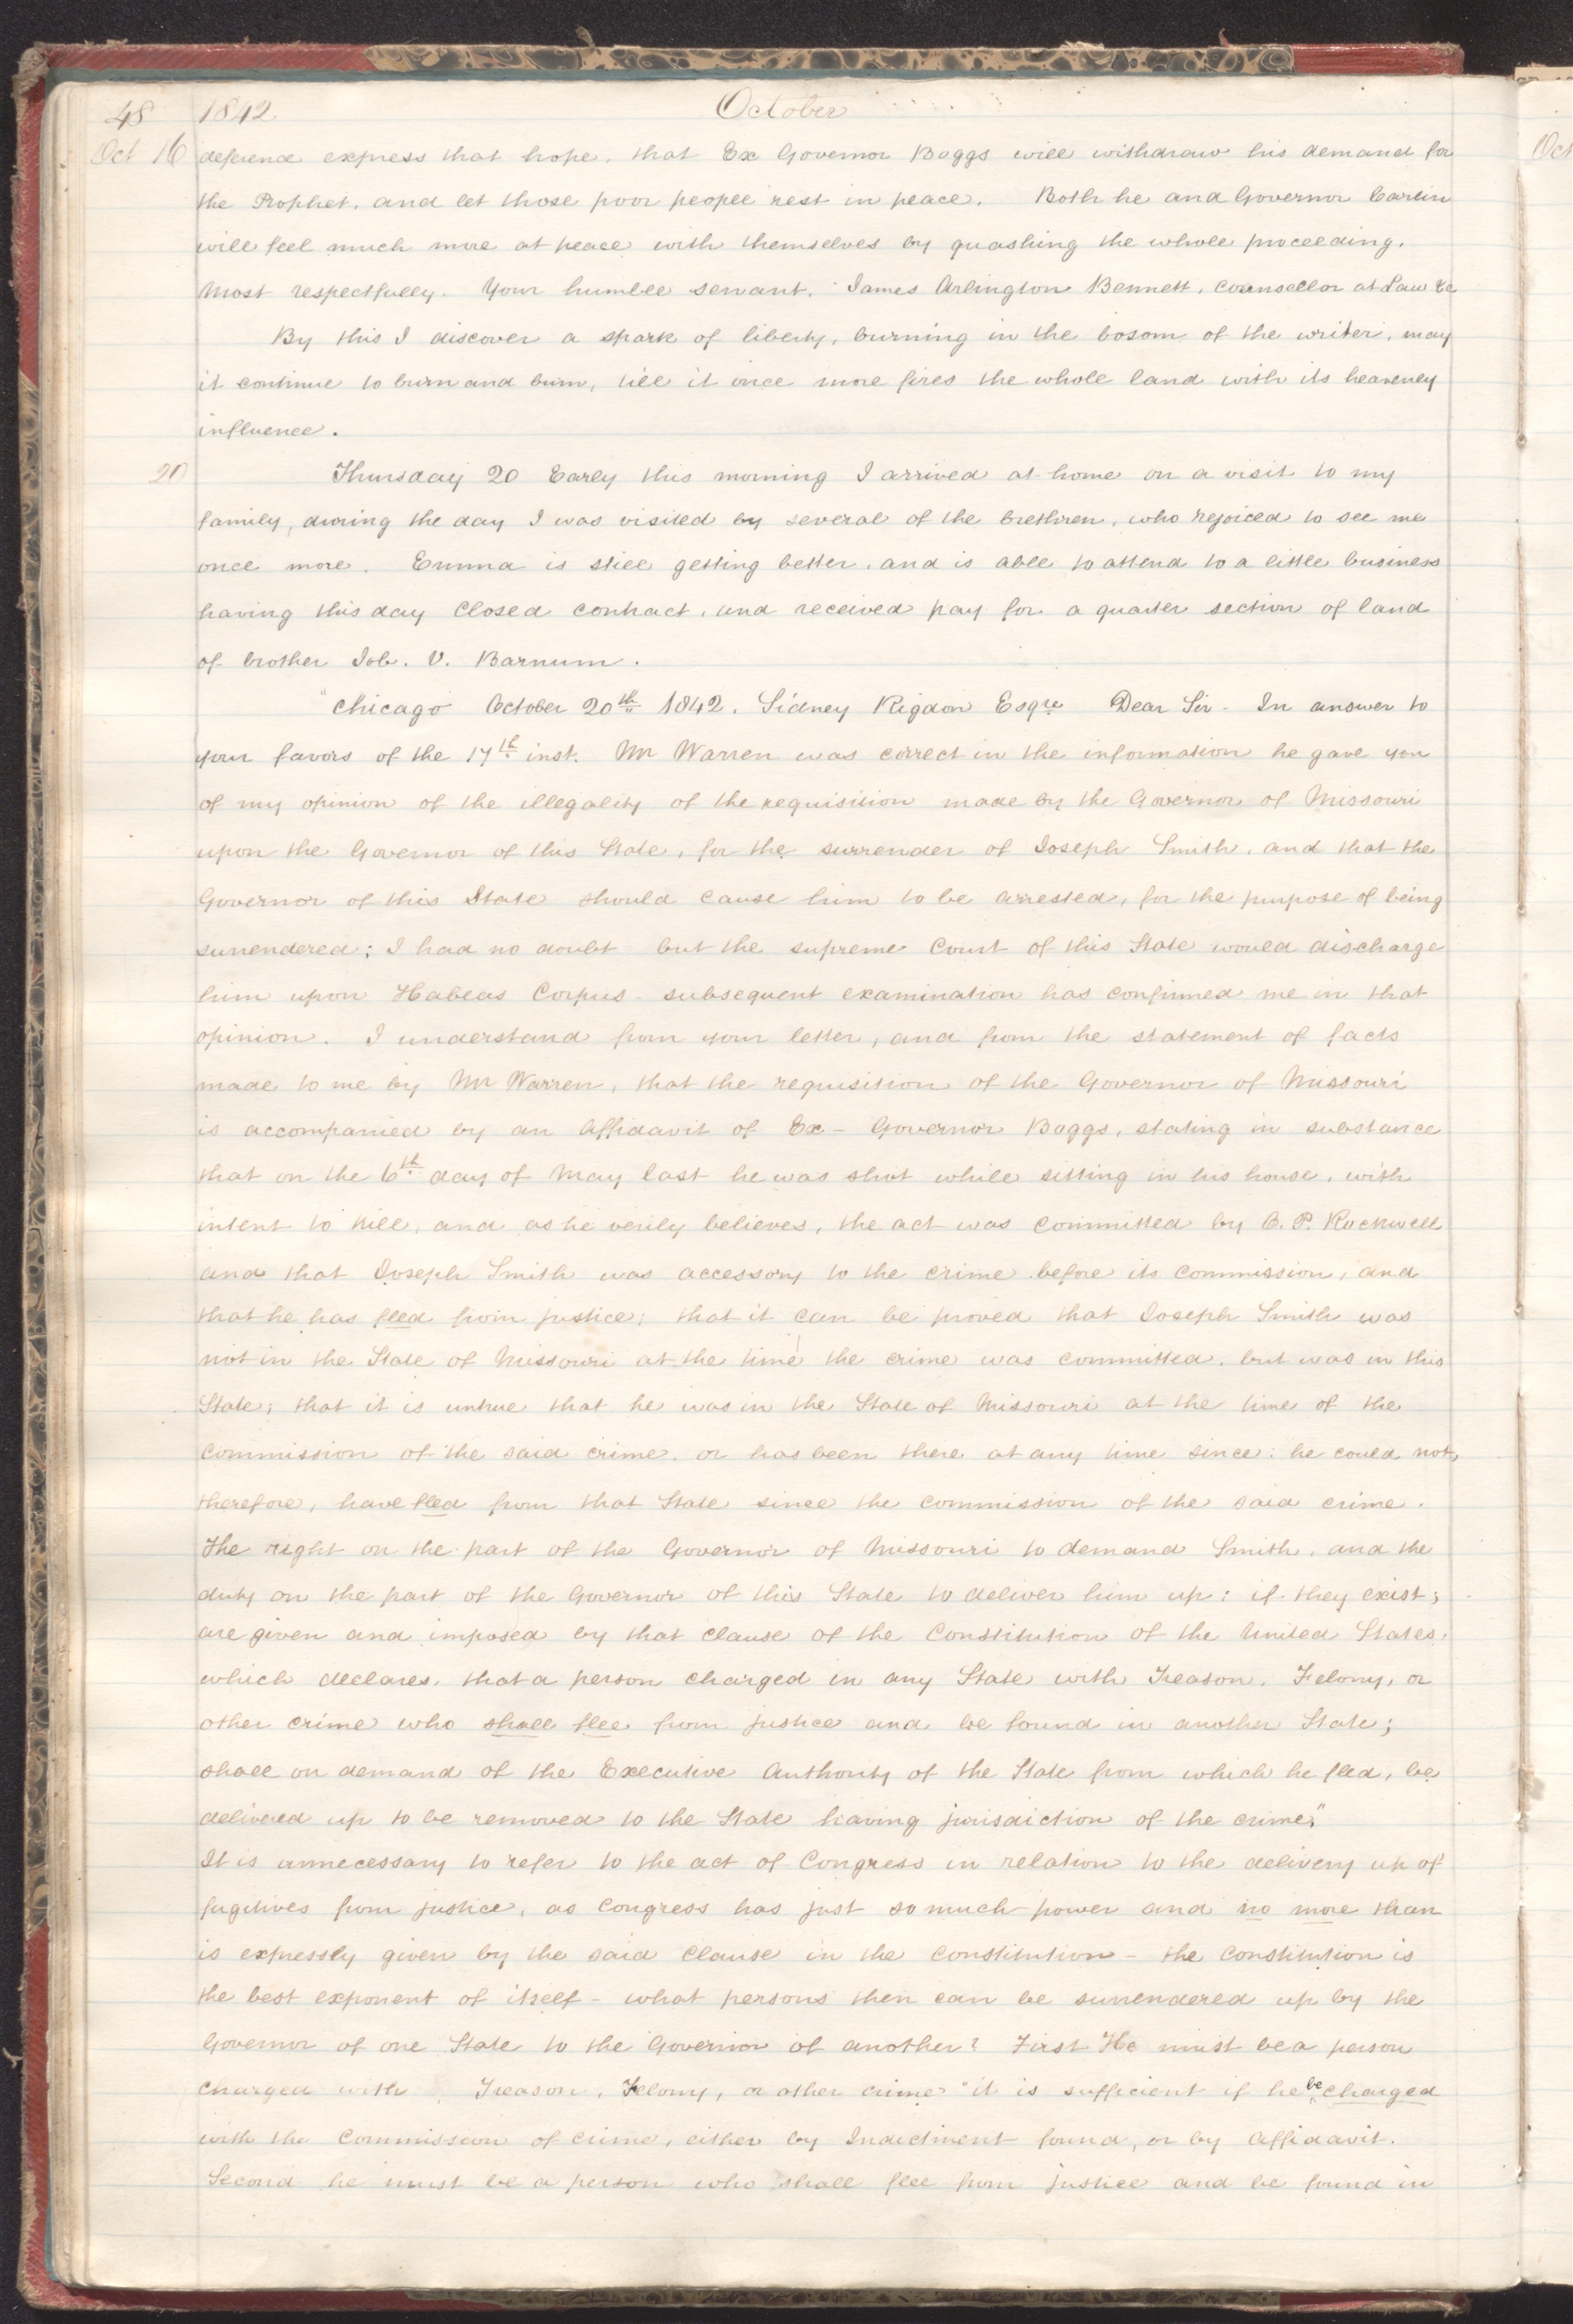 48 1842 October
Oct 16 deference express that hope, that Ex Governor Boggs will withdraw his demand for
the Prophet, and let those poor people rest in peace. Both he and Governor Carlin
will feel much more at peace with themselves by quashing the whole proceeding.
Most respectfully. Your humble servant. James Arlington Bennett, counsellor at Law &c
By this I discover a spark of liberty, burning in the bosom of the writer, may
it continue to burn and burn, till it once more fires the whole land with its heavenly
influence.
20 Thursday 20 Early this morning I arrived at home on a visit to my
family, during the day I was visited by several of the brethren, who rejoiced to see me
once more. Emma is still getting better, and is able to attend to a little business
having this day closed contract, and received pay for a quarter section of land
of brother Job. V. Barnum.
"Chicago October 20th 1842. Sidney Rigdon Esqre Dear Sir - In answer to
your favors of the 17th inst. Mr Warren was correct in the information he gave you
of my opinion of the illegality of the requisition made by the Governor of Missouri
upon the Governor of this State, for the surrender of Joseph Smith, and that the
Governor of this State should cause him to be arrested, for the purpose of being
surrendered; I had no doubt but the supreme Court of this State would discharge
him upon Habeas Corpus subsequent examination has confirmed me in that
opinion. I understand from your letter, and from the statement of facts
made to me by Mr Warren, that the requisition of the Governor of Missouri
is accompanied by an affidavit of Ex-Governor Boggs, stating in substance
that on the 6th day of May last he was shot while sitting in his house, with
intent to kill, and as he verily believes, the act was committed by O. P. Rockwell
and that Joseph Smith was accessory to the crime before its commission, and
that he has fled from justice; that it can be proved that Joseph Smith was
not in the State of Missouri at the time the crime was committed, but was in this
State; that it is untrue that he was in the State of Missouri at the time of the
commission of the said crime, or has been there at any time since: he could not,
therefore, have fled from that State since the commission of the said crime.
The right on the part of the Governor of Missouri to demand Smith, and the
duty on the part of the Governor of this State to deliver him up; if they exist;
are given and imposed by that clause of the Constitution of the United States,
which declares, that a person charged in any State with Treason, Felony, or
other crime who shall flee from justice and be found in another State;
shall on demand of the Executive Authority of the State from which he fled, be
delivered up to be removed to the State having jurisdiction of the crime."
It is unnecessary to refer to the act of Congress in relation to the delivery up of
fugitives from justice, as Congress has just so much power and no more than
is expressly given by the said clause in the constitution - the constitution is
the best exponent of itself - what persons then can be surrendered up by the
Governor of one State to the Governor of another? First He must be a person
charged with Treason, Felony, or other crime "it is sufficient if he be charged
with the commission of crime, either by Indictment found, or by affidavit.
Second he must be a person who shall flee from justice and be found in
Oct